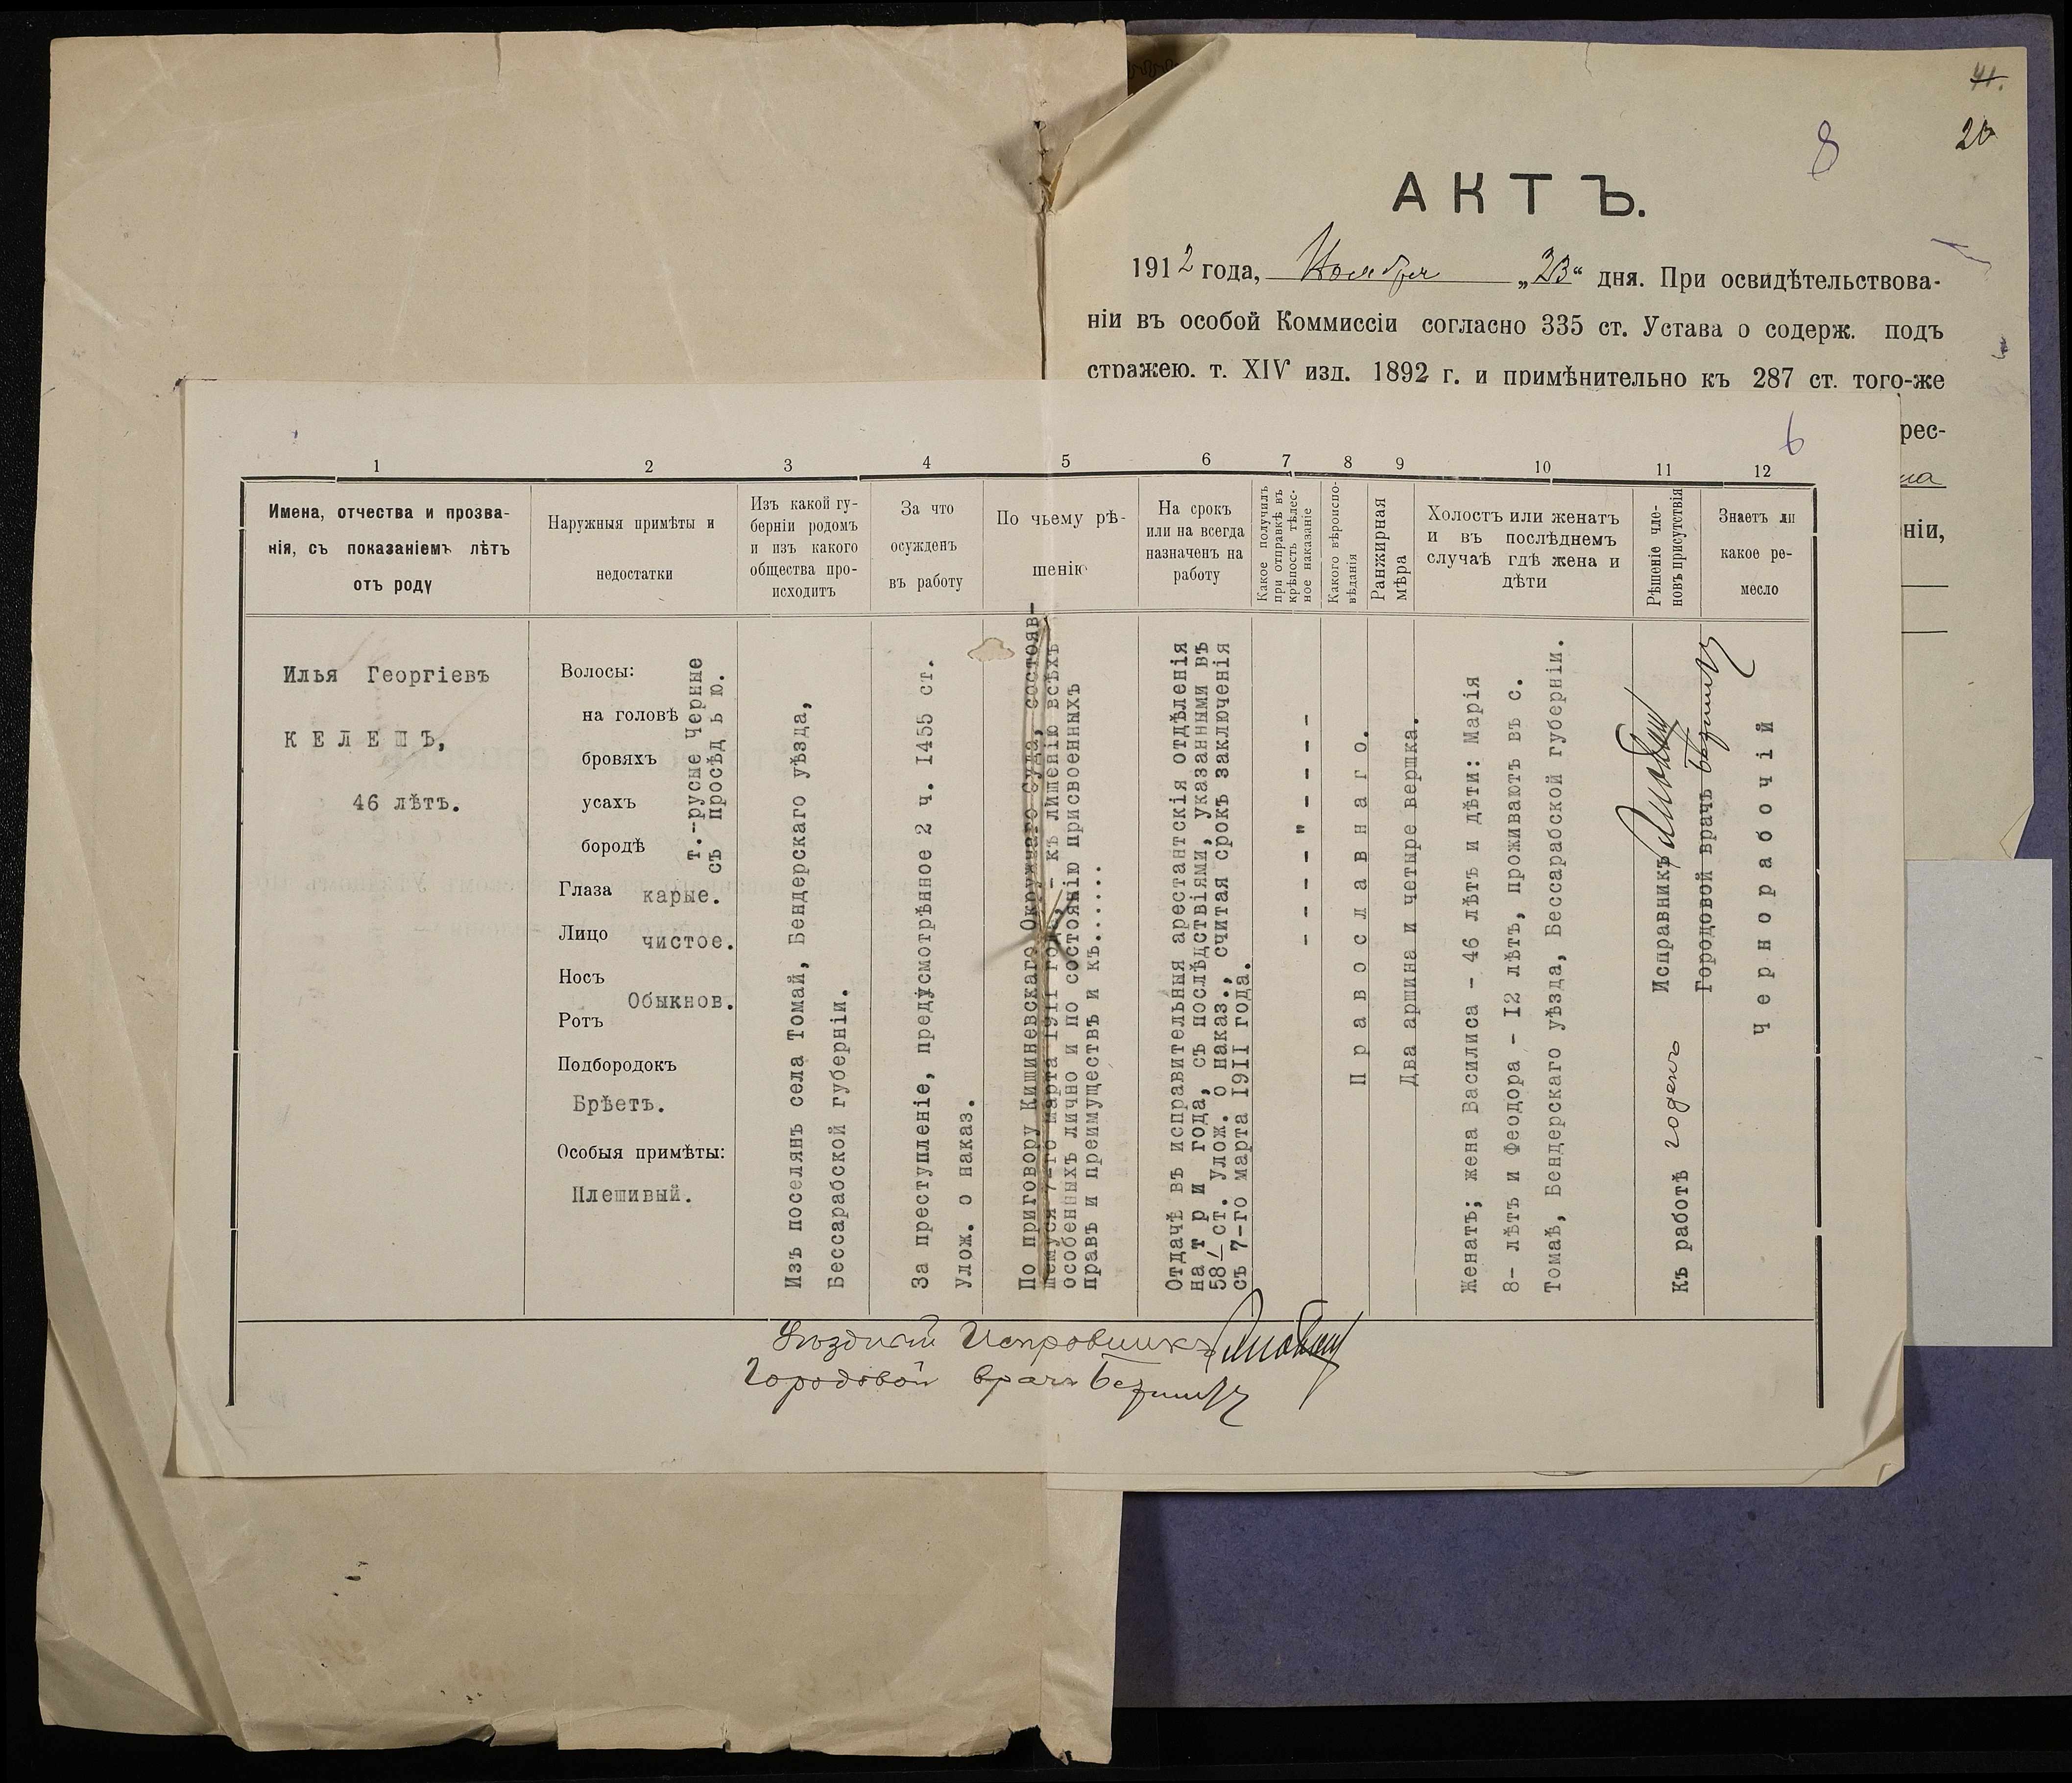 41.
20
8
АКТЪ.
1912 года, Ноября „23“ дня. При освидѣтельствова-
ніи въ особой Коммиссіи согласно 335 ст. Устава о содерж. подъ
стражею. т. XIV изд. 1892 г. и примѣнительно къ 287 ст. того-же
рес-
на
ніи,
6
1 2 3 4 5 6 7 8 9 10 11 12
Имена, отчества и прозва-
нія, съ показаніемъ лѣтъ
отъ роду
Наружныя примѣты и
недостатки
Изъ какой гу-
берніи родомъ
и изъ какого
общества про-
исходитъ
За что
осужденъ
въ работу
По чьему рѣ-
шенію
На срокъ
или на всегда
назначенъ на
работу
Какое получилъ
при отправкѣ въ
крѣпость тѣлес-
ное наказаніе
Какого вѣроиспо-
вѣданія
Ранжирная
мѣра
Холостъ или женатъ
и въ послѣднемъ
случаѣ гдѣ жена и
дѣти
Рѣшеніе чле-
новъ присутствія
Знаетъ ли
какое ре-
месло
Илья Георгіевъ
КЕЛЕШЪ,
46 лѣтъ.
Волосы:
на головѣ
бровяхъ
усахъ
бородѣ
т.-русые черные
съ просѣдью.
Глаза карые.
Лицо чистое.
Носъ
Обыкнов.
Ротъ
Подбородокъ
Брѣетъ.
Особыя примѣты:
Плешивый.
Изъ поселянъ села Томай, Бендерскаго уѣзда,
Бессарабской губерніи.
За преступленіе, предусмотрѣнное 2 ч. 1455 ст.
Улож. о наказ.
По приговору Кишиневскаго Окружнаго Суда, состояв-
шемуся 7-го марта 1911 года, - къ лишенію всѣхъ
особенныхъ лично и по состоянію присвоенныхъ
правъ и преимуществъ и къ.......
Отдачѣ въ исправительныя арестантскія отдѣленія
на три года, съ послѣдствіями, указанными въ
58/ ст. улож. о наказ., считая срокъ заключенія
съ 7-го марта 1911 года.
- - - - " - - - -
Православнаго.
Два аршина и четыре вершка.
Женатъ; жена Василиса - 46 лѣтъ и дѣти: Марія
8- лѣтъ и Феодора - 12 лѣтъ, проживаютъ въ с.
Томаѣ, Бендерскаго уѣзда, Бессарабской губерніи.
Къ работѣ годенъ Исправникъ
Городовой врачъ
Чернорабочій
Уѣздный Исправникъ
Городовой врачъ